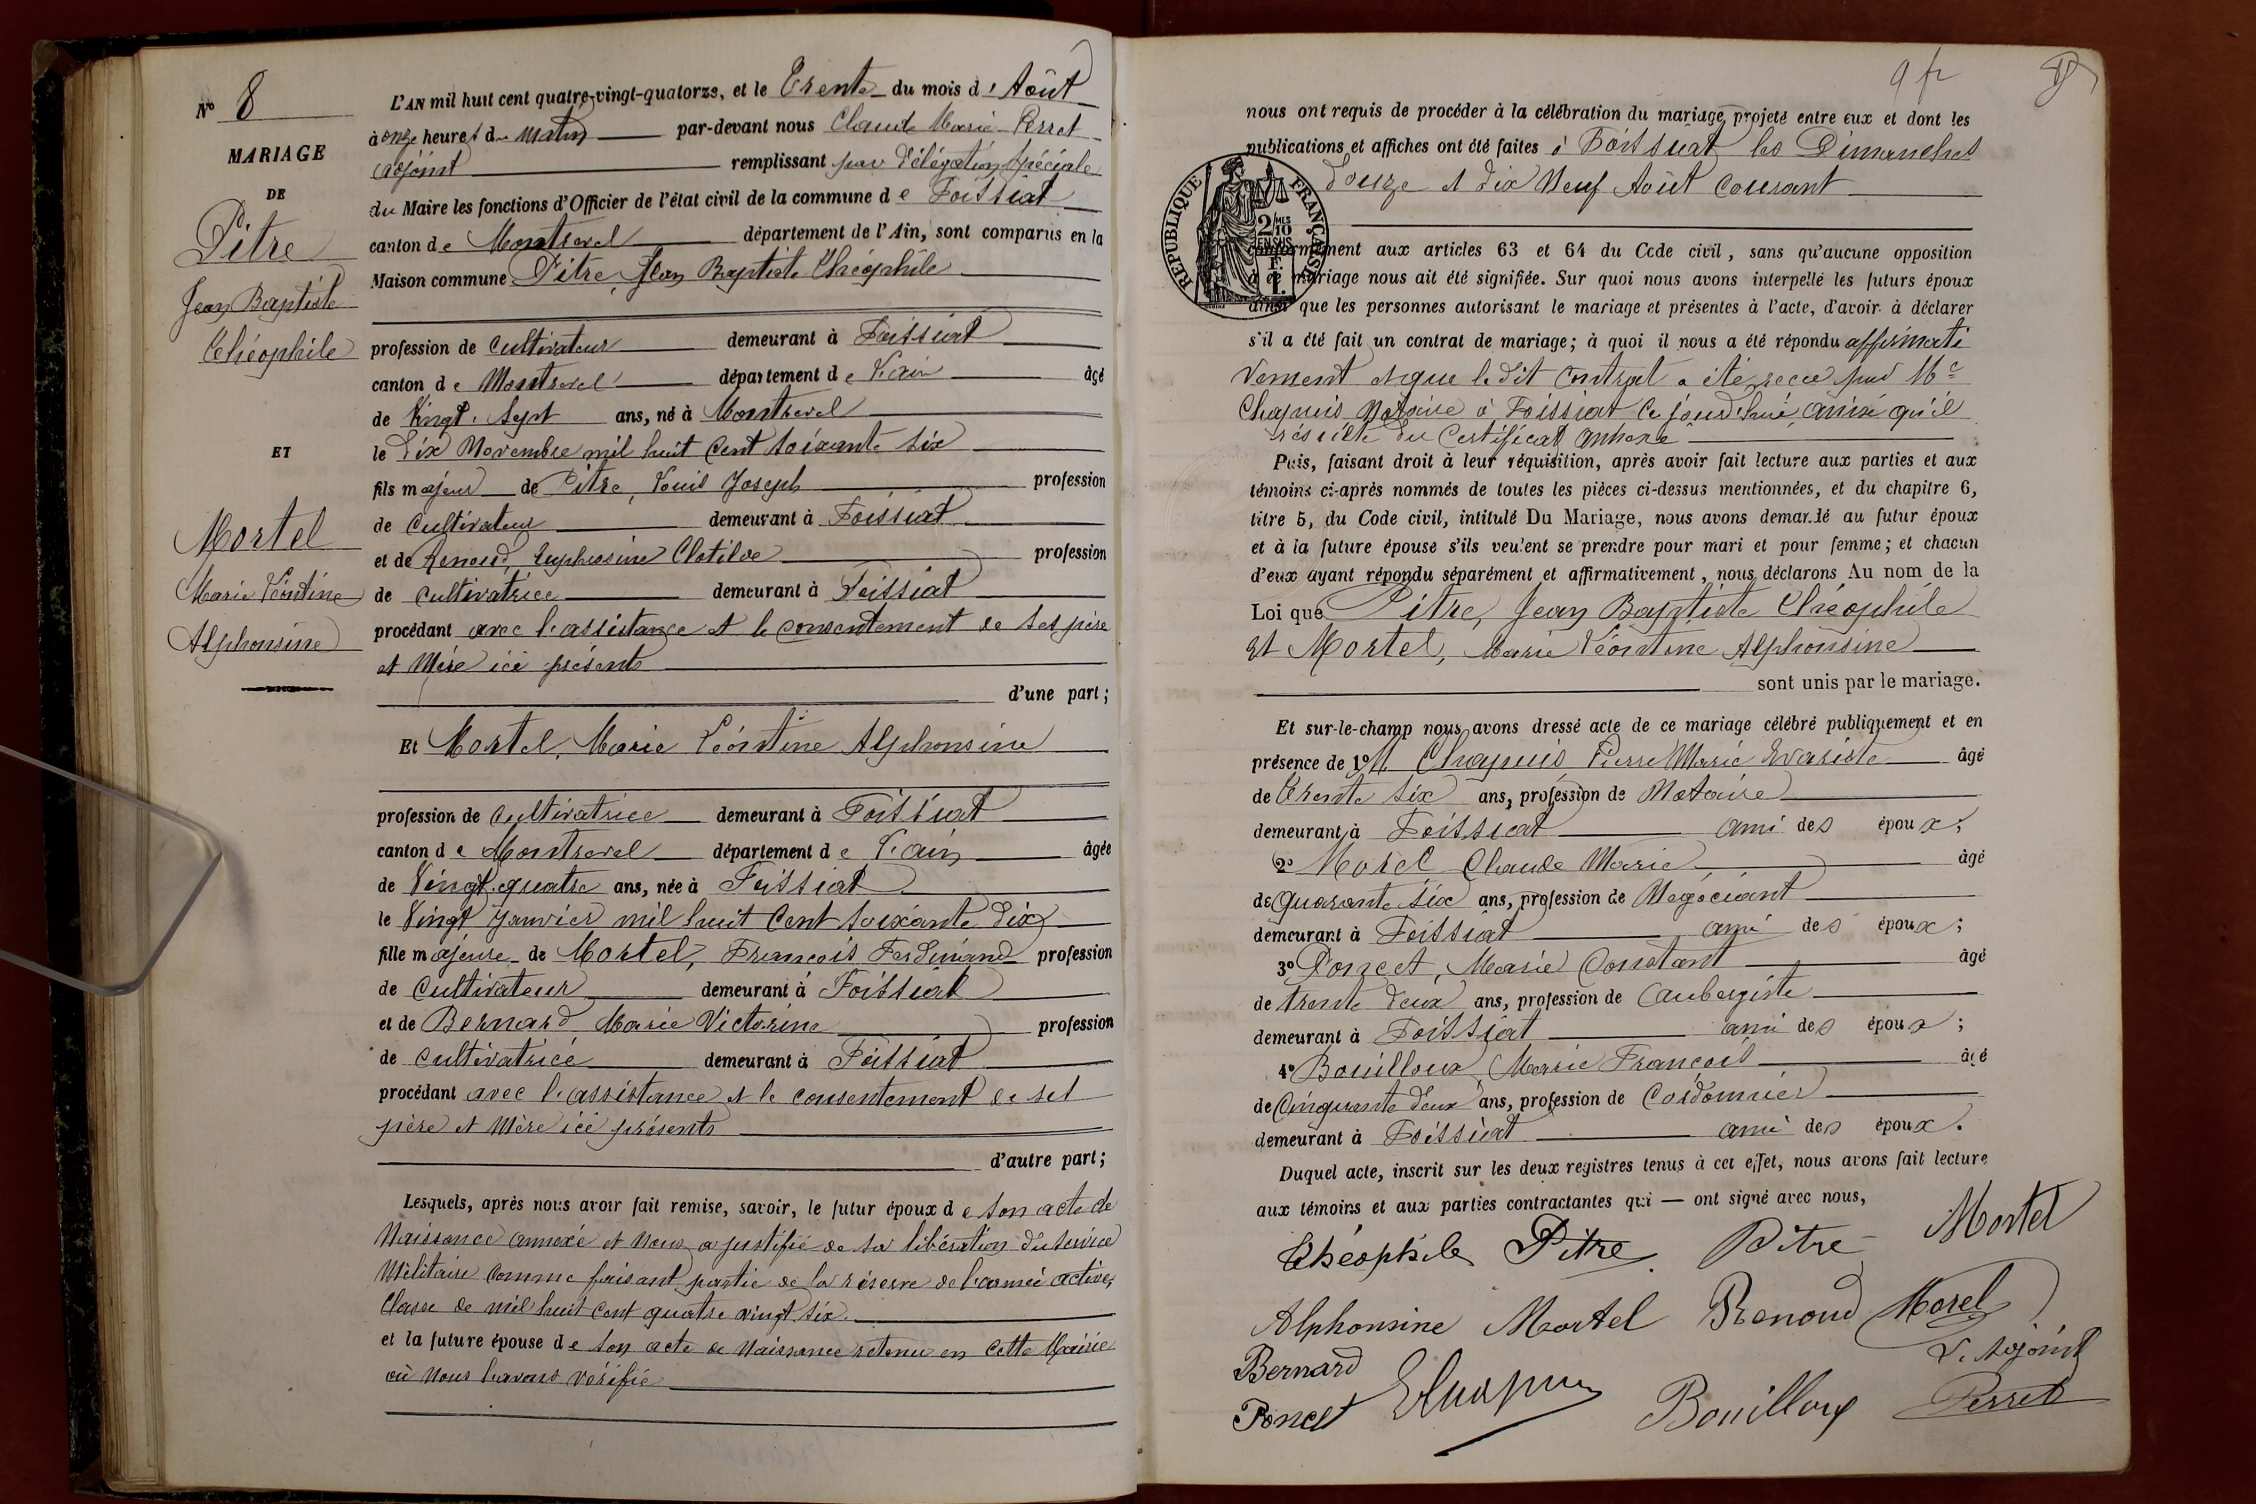 N° 8
MARIAGE
DE
Pitre
Jean Baptiste
Théophile
ET
Mortel
Marie Léontine
Alphonsine
L'AN mil huit cent quatre-vingt-quatorze, et le Trente du mois d'Août
à onze heures du Matin par-devant nous Claude Marie Perret
adjoint remplissant par délégation spéciale
du Maire les fonctions d'Officier de l'état civil de la commune de Foissiat
canton de Montrevel département de l'Ain, sont comparus en la
Maison commune Pitre, Jean Baptiste Théophile
profession de Cultivateur demeurant à Foissiat
canton de Montrevel département de l'ain âgé
de Vingt-Sept ans, né à Montrevel
le Dix Novembre mil huit Cent soixante six
fils majeur de Pitre, Louis Joseph profession
de Cultivateur demeurant à Foissiat
et de Renoud, Euphrosine Clotilde profession
de Cultivatrice demeurant à Foissiat
procédant avec l'assistance et le consentement de ses père
et Mère ici présents
d'une part;
Et Mortel, Marie Léontine Alphonsine
profession de Cultivatrice demeurant à Foissiat
canton de Montrevel département de l'ain âgée
de Vingt-quatre ans, née à Foissiat
le Vingt Janvier mil huit Cent soixante Dix
fille majeure de Mortel, François Ferdinand profession
de Cultivateur demeurant à Foissiat
et de Bernard Marie Victorine profession
de Cultivatrice demeurant à Foissiat
procédant avec l'assistance et le consentement de ses
père et Mère ici présents
d'autre part;
Lesquels, après nous avoir fait remise, savoir, le futur époux de son acte de
Naissance annexé et nous a justifié de sa libération du service
Militaire comme faisant partie de la réserve de l'armée active,
Classe de mil huit cent quatre vingt six.
et la future épouse de son acte de Naissance retenu en cette Mairie
où nous l'avons vérifié
9 fr
nous ont requis de procéder à la célébration du mariage projeté entre eux et dont les
publications et affiches ont été faites à Foissiat les Dimanches
Douze et dix Neuf Août Courant
RÉPUBLIQUE FRANÇAISE
2/10 EN SUS
conformément aux articles 63 et 64 du Code civil, sans qu'aucune opposition
à ce mariage nous ait été signifiée. Sur quoi nous avons interpellé les futurs époux
ainsi que les personnes autorisant le mariage et présentes à l'acte, d'avoir à déclarer
s'il a été fait un contrat de mariage; à quoi il nous a été répondu affirmati
vement et que le dit Contrat a été recu par Me
Chapuis Notaire à Foissiat ce jourd'hui, ainsi qu'il
résulte du Certificat annexé
Puis, faisant droit à leur réquisition, après avoir fait lecture aux parties et aux
témoins ci-après nommés de toutes les pièces ci-dessus mentionnées, et du chapitre 6,
titre 5, du Code civil, intitulé Du Mariage, nous avons demandé au futur époux
et à la future épouse s'ils veulent se prendre pour mari et pour femme; et chacun
d'eux ayant répondu séparément et affirmativement, nous déclarons Au nom de la
Loi que Pitre, Jean Baptiste Théophile
Et Mortel, Marie Léontine Alphonsine
sont unis par le mariage.
Et sur-le-champ nous avons dressé acte de ce mariage célébré publiquement et en
présence de 1° M Chapuis Pierre Marie Evariste âgé
de Trente six ans, profession de Notaire
demeurant à Foissiat ami des époux;
2° Morel Claude Marie âgé
de Quarante six ans, profession de Négociant
demeurant à Foissiat ami des époux;
3° Poncet, Marie Constant âgé
de trente deux ans, profession de aubergiste
demeurant à Foissiat ami des époux;
4° Bouilloux Marie François âgé
de Cinquante deux ans, profession de Cordonnier
demeurant à Foissiat ami des époux.
Duquel acte, inscrit sur les deux registres tenus à cet effet, nous avons fait lecture
aux témoins et aux parties contractantes qui — ont signé avec nous,
Théophile Pitre Pitre Mortel
Alphonsine Mortel Renoud Morel
Bernard L'Adjoint
Poncet EChapuis Bouilloux Perret